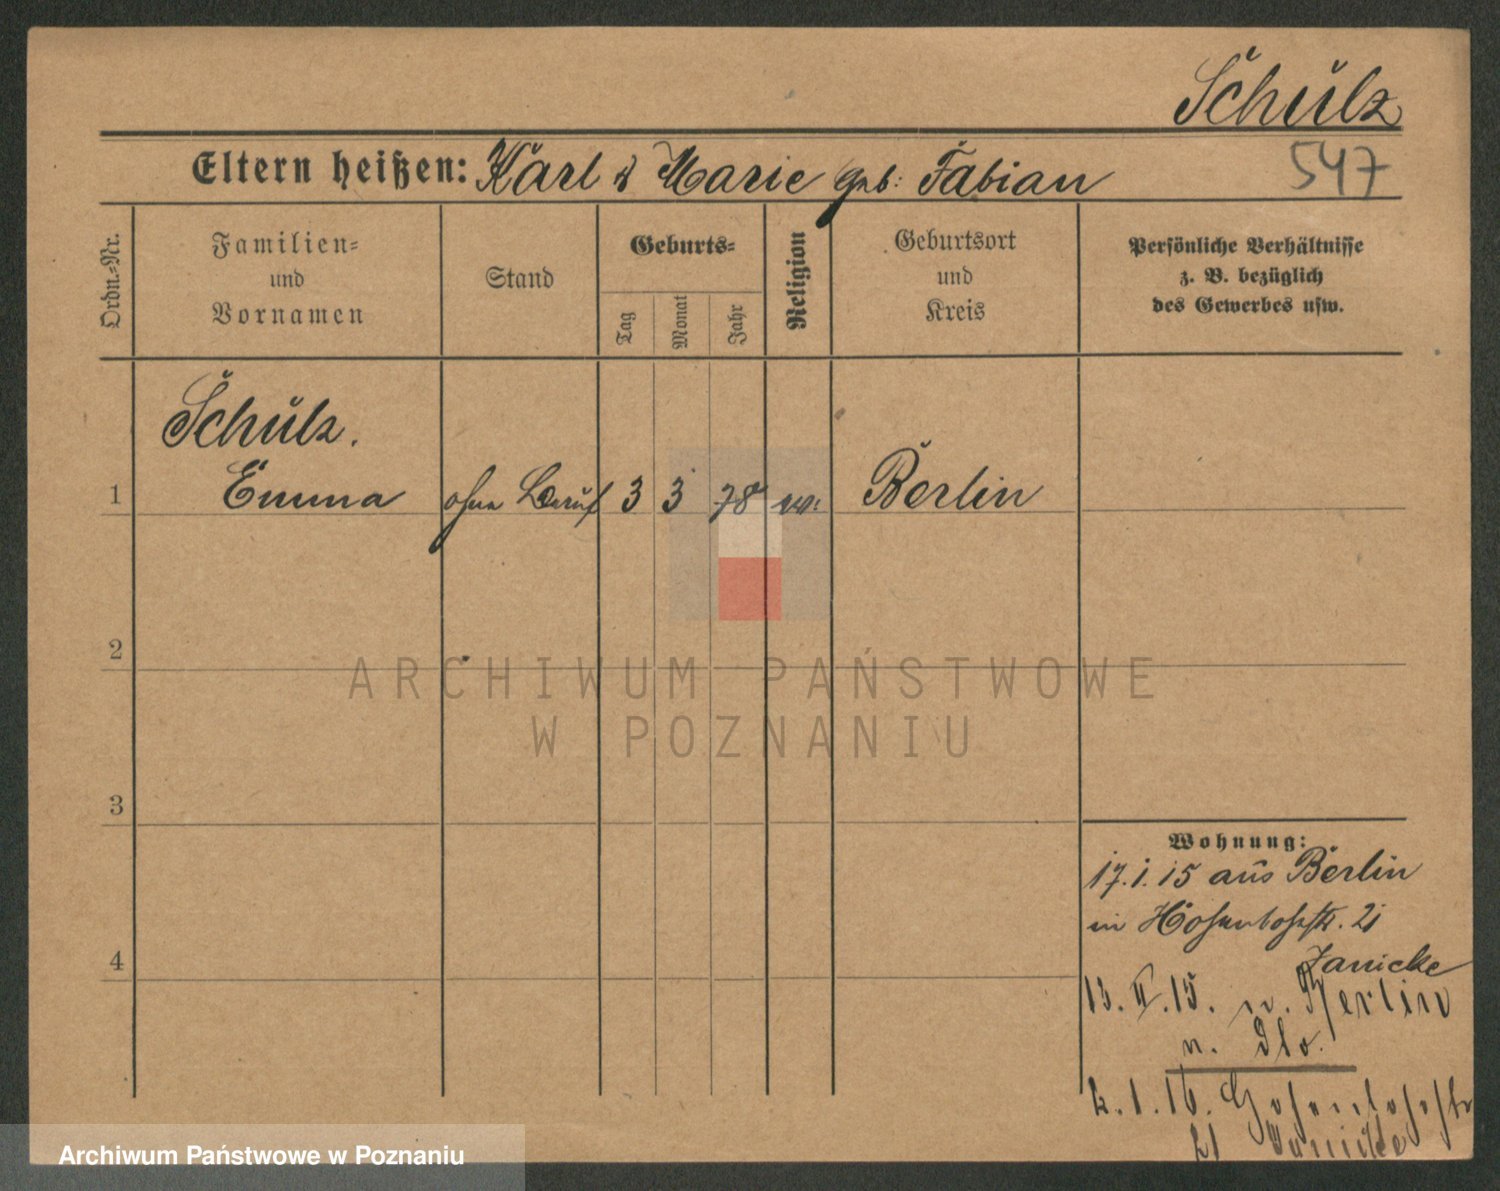 Schulz
Eltern heißen: Karl & Marie geb: Fabian
547
Ordn.-Nr.
Familien-
und
Vornamen
Stand
Geburts-
Tag
Monat
Jahr
Religion
Geburtsort
und
Kreis
Persönliche Verhältnisse
z. B. bezüglich
des Gewerbes usw.
Schulz.
1 Emma ohne Beruf 3 3 78 ev: Berlin
2
3
4
Wohnung:
17.1.15 aus Berlin
in Hohenlohestr. 21
Janicke
13.II.15. n. Berlin
2.1.16. Hohenlohestr
21 Janicke
ARCHIWUM PAŃSTWOWE
W POZNANIU
Archiwum Państwowe w Poznaniu